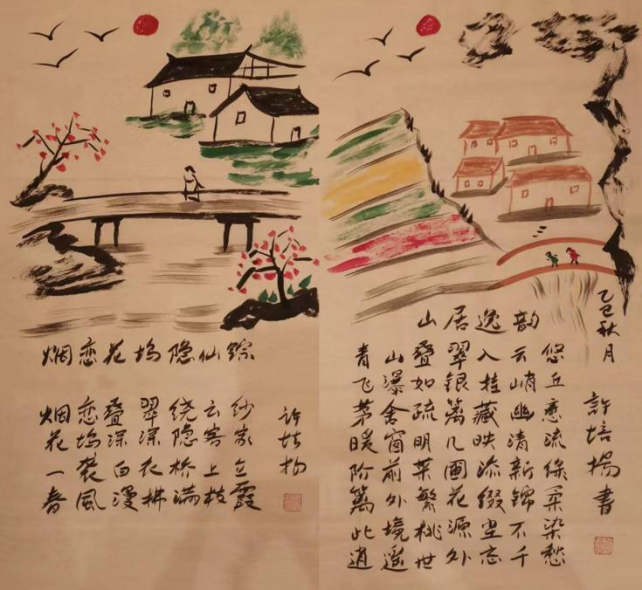 烟恋花坞隐仙踪
烟恋叠翠绕云纱
花坞深深隐客家
一袭白衣桥上立
春風漫拂满枝霞
許培扬
山居逸韵
青山叠翠入云悠
飞瀑如银挂峭丘
茅舍疏篱藏幽意
暖窗明几映清流
阶前菜圃添新绿
篱外繁花缀锦柔
此境桃源坐不染
逍遥世外忘千愁
乙巳秋月
許培揚書